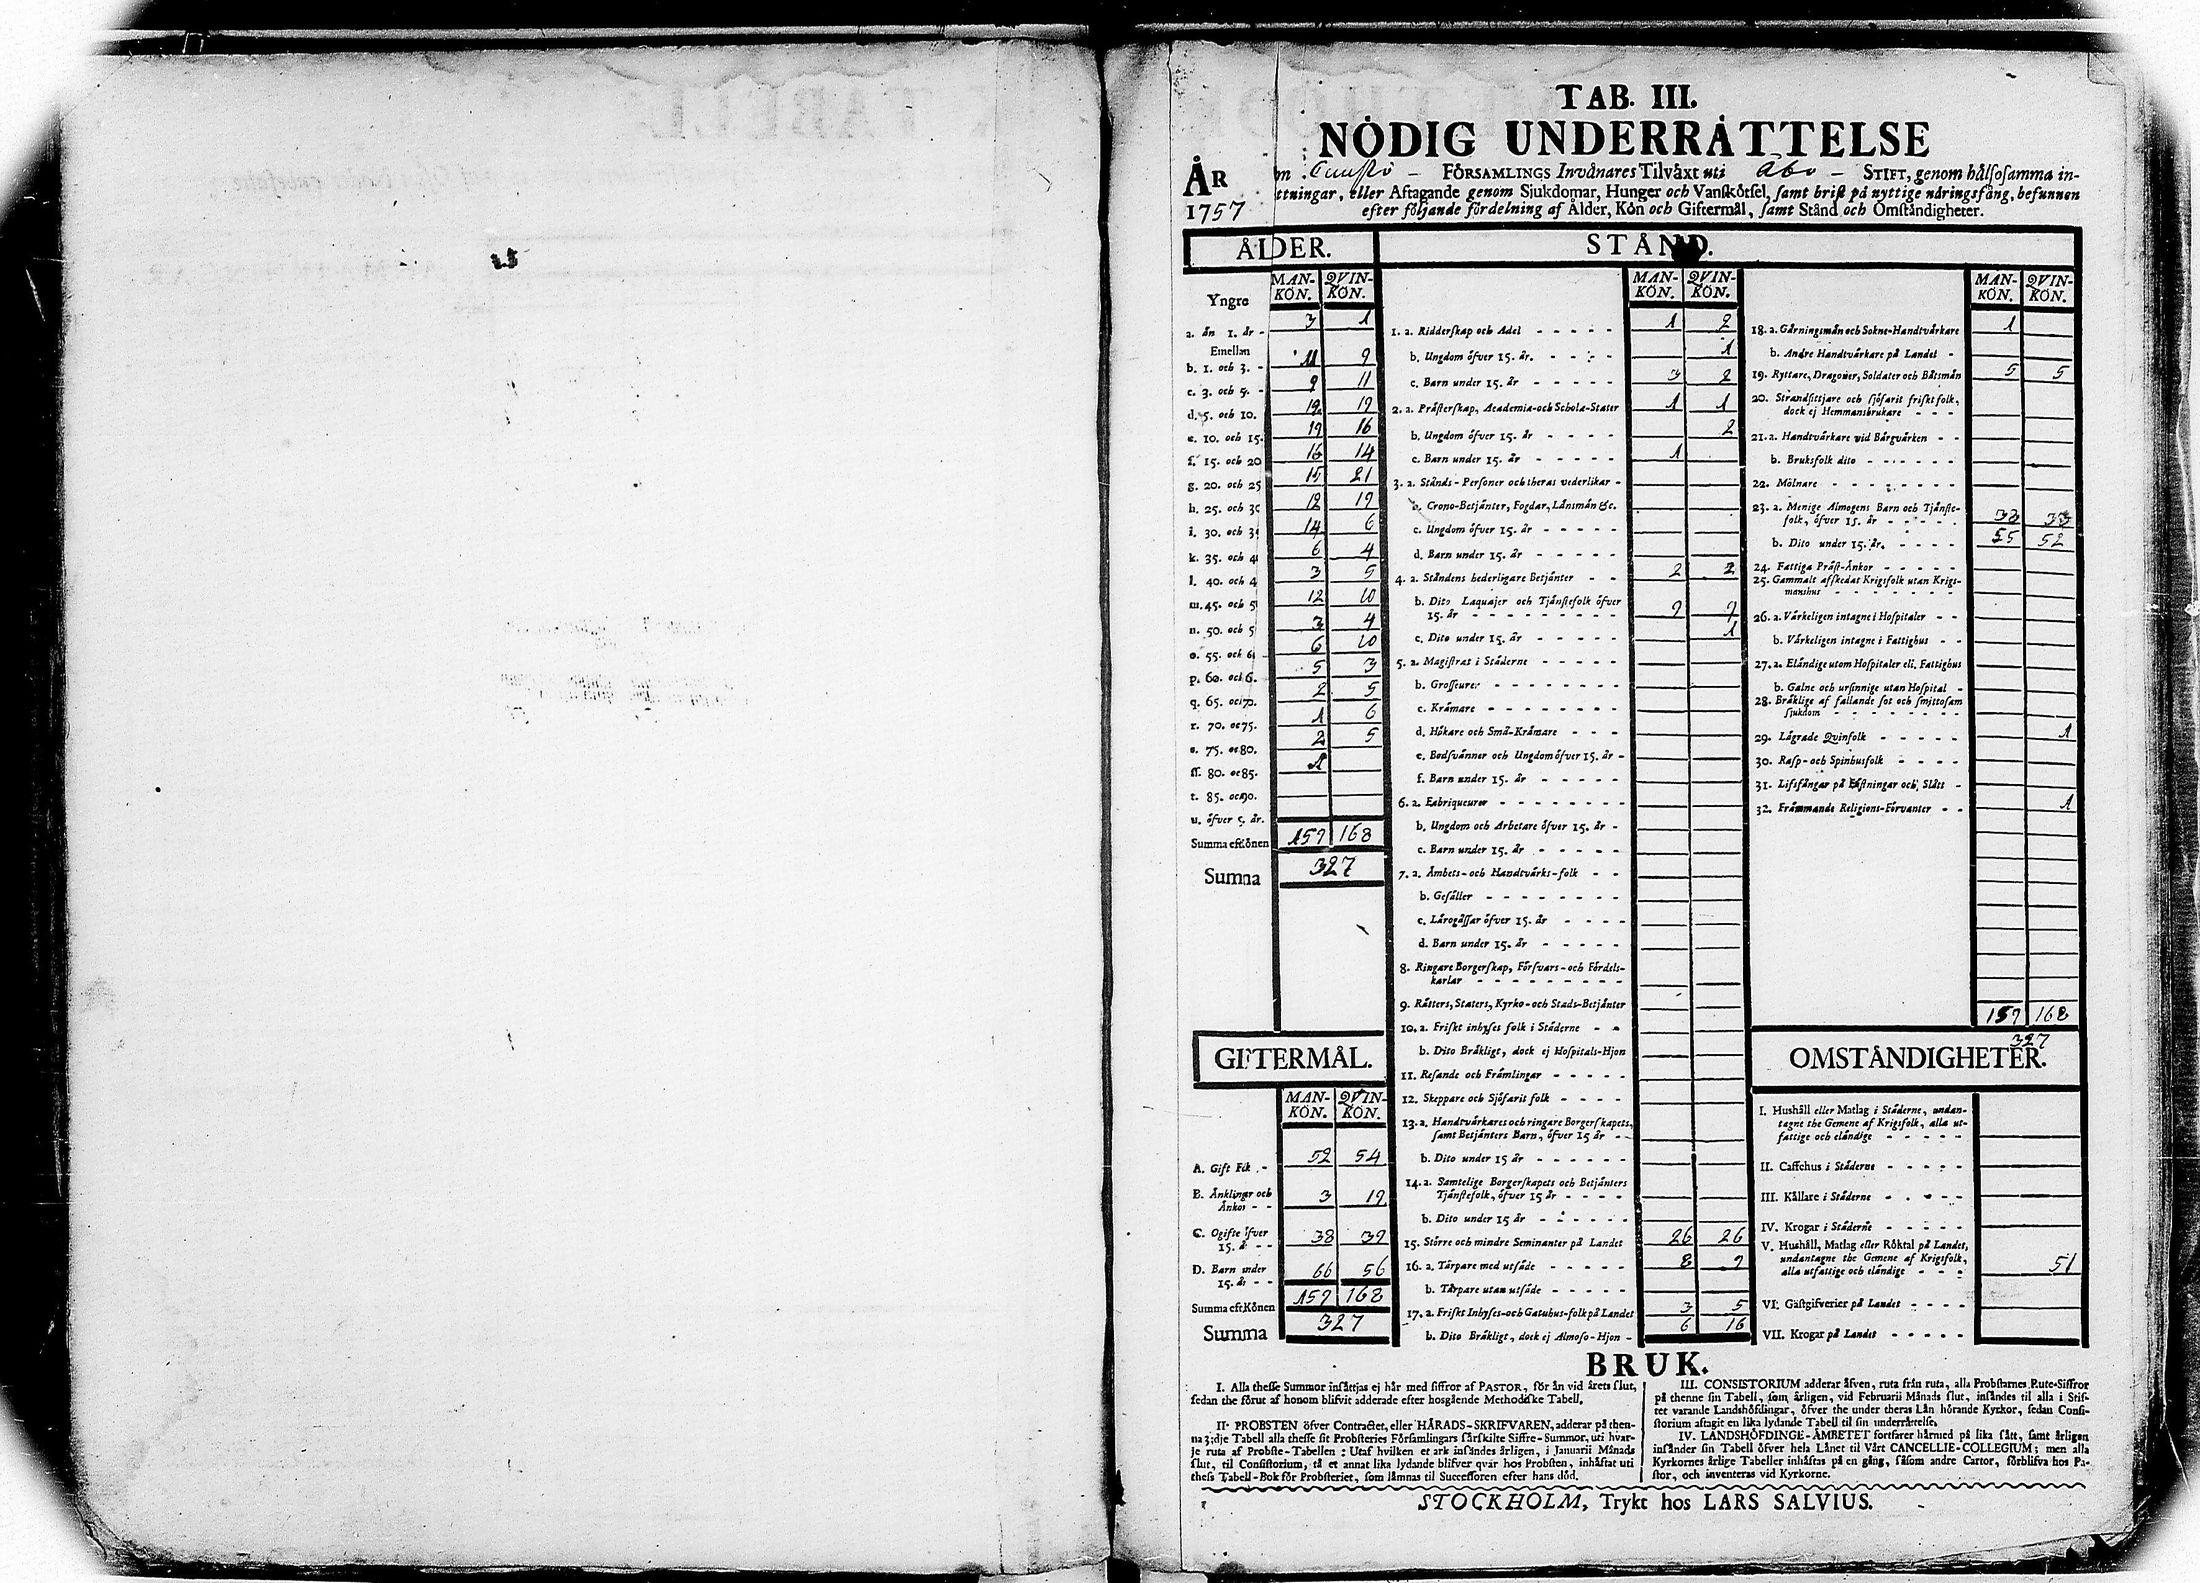 TAB. III.
NÖDIG UNDERRÅTTELSE
ÅR 1757
FÖRSAMLINGS Invånares Tilväxt uti Åbo – STIFT, genom hälsosamma in-
ttningar, eller Aftagande genom Sjukdomar, Hunger och Vanskötsel, samt brist på nyttige näringsfång, befunnen
efter följande fördelning af Ålder, Kön och Giftermål, samt Stånd och Omständigheter.
ÅLDER.
MAN-KÖN. QVIN-KÖN.
Yngre
a. än 1. år - 3 1
Emellan
b. 1. och 3. - 11 9
c. 3. och 5. - 9 11
d. 5. och 10. 19 19
e. 10. och 15. 19 16
f. 15. och 20 16 14
g. 20. och 25 15 21
h. 25. och 30 12 19
i. 30. och 35 14 6
k. 35. och 4 6 4
l. 40. och 4 3 5
m. 45. och 5 12 10
n. 50. och 5 3 4
o. 55. och 6 6 10
p. 60. och 6. 5 3
q. 65. och 70. 2 5
r. 70. oc 75. 1 6
s. 75. oc 80. 2 5
ff. 80. oc 85. 1
t. 85. oc 90.
u. öfver 9. år.
Summa eft. Könen 159 168
Summa 327
GIFTERMÅL.
MAN-KÖN. QVIN-KÖN.
A. Gift Fck - 52 54
B. Änklingar och Änkor - - 3 19
C. Ogifte öfver 15. år - - 38 39
D. Barn under 15. år - - 66 56
Summa eft. Könen 159 168
Summa 327
STÅND.
MAN-KÖN. QVIN-KÖN.
1. a. Ridderskap och Adel - - - - - 1 2
b. Ungdom öfver 15. år. - - - - 1
c. Barn under 15. år - - - - - 3 2
2. a. Prästerskap, Academia-och Schola-Stater 1 1
b. Ungdom öfver 15. år - - - - 2
c. Barn under 15. år - - - - - 1
3. a. Stånds-Personer och theras vederlikar -
b. Crono-Betjänter, Fogdar, Länsmän &c.
c. Ungdom öfver 15. år - - - - -
d. Barn under 15. år - - - - -
4. a. Ståndens hederligare Betjänter - - 2 2
b. Dito Laquajer och Tjänstefolk öfver
15. år - - - - - - - - - 9 9
c. Dito under 15. år - - - - - 1
5. a. Magistrat i Städerne - - - - -
b. Grosseurer - - - - - - - -
c. Krämare - - - - - - - -
d. Hökare och Små-Krämare - - -
e. Bodsvänner och Ungdom öfver 15. år -
f. Barn under 15. år - - - - -
6. a. Fabriqueurer - - - - - - - -
b. Ungdom och Arbetare öfver 15. år -
c. Barn under 15. år - - - - -
7. a. Ämbets-och Handtvärks-folk - -
b. Gesäller - - - - - - - -
c. Lärogåssar öfver 15. år - - - -
d. Barn under 15. år - - - - -
8. Ringare Borgerskap, Försvars-och Fördels-
karlar - - - - - - - - -
9. Rätters, Staters, Kyrko-och Stads-Betjänter
10. a. Friskt inhyses folk i Städerne - -
b. Dito Bräkligt, dock ej Hospitals-Hjon
11. Resande och Främlingar - - - - -
12. Skeppare och Sjöfarit folk - - - -
13. a. Handtvärkares och ringare Borgerskapets,
samt Betjänters Barn, öfver 15 år - -
b. Dito under 15 år - - - - - -
14. a. Samtelige Borgerskapets och Betjänters
Tjänstefolk, öfver 15 år - - - -
b. Dito under 15 år - - - - - -
15. Större och mindre Seminanter på Landet 26 26
16. a. Tårpare med utsäde - - - - - 8 9
b. Tårpare utan utsäde - - - - -
17. a. Friskt Inhyses-och Gatuhus-folk på Landet 3 5
b. Dito Bräkligt, dock ej Almoso-Hjon - 6 16
MAN-KÖN. QVIN-KÖN.
18. a. Gärningsmän och Sokne-Handtvärkare 1
b. Andre Handtvärkare på Landet -
19. Ryttare, Dragoner, Soldater och Båtsmän 5 5
20. Strandsittjare och sjöfarit friskt folk,
dock ej Hemmansbrukare - - -
21. a. Handtvärkare vid Bärgvärken - -
b. Bruksfolk dito - - - - - -
22. Mölnare - - - - - - - -
23. a. Menige Almogens Barn och Tjänste-
folk, öfver 15. år - - - - - 38 33
b. Dito under 15. år. - - - - - 55 52
24. Fattiga Präst-Änkor - - - - -
25. Gammalt afskedat Krigsfolk utan Krigs-
manshus - - - - - - - -
26. a. Värkeligen intagne i Hospitaler - -
b. Värkeligen intagne i Fattighus - -
27. a. Eländige utom Hospitaler ell. Fattighus
b. Galne och ursinnige utan Hospital -
28. Bräklige af fallande sot och smittosam
sjukdom - - - - - - - -
29. Lägrade Qvinfolk - - - - - 1
30. Rasp-och Spinhusfolk - - - -
31. Lifsfångar på Fästningar och Slått -
32. Främmande Religions-Förvanter - - 1
159 168
327
OMSTÄNDIGHETER.
I. Hushåll eller Matlag i Städerne, undan-
tagne the Gemene af Krigsfolk, alla ut-
fattige och eländige - - - - -
II. Caffehus i Städerne - - - - -
III. Källare i Städerne - - - - -
IV. Krogar i Städerne - - - - -
V. Hushåll, Matlag eller Röktal på Landet,
undantagne the Gemene af Krigsfolk,
alla utfattige och eländige - - - 51
VI. Gästgifverier på Landet - - - -
VII. Krogar på Landet - - - - -
BRUK.
I. Alla thesse Summor insättjas ej här med siffror af PASTOR, för än vid årets slut,
sedan the förut af honom blifvit adderade efter hosgående Methodiske Tabell.
II. PROBSTEN öfver Contractet, eller HÄRADS-SKRIFVAREN, adderar på then-
na 3:dje Tabell alla thesse sit Probsteries Församlingars särskilte Siffre-Summor, uti hvar-
je ruta af Probste-Tabellen: Utaf hvilken et ark insändes årligen, i Januarii Månads
slut, til Consistorium, tå et annat lika lydande blifver qvar hos Probsten, inhäftat uti
thess Tabell-Bok för Probsteriet, som lämnas til Successoren efter hans död.
III. CONSISTORIUM adderar äfven, ruta från ruta, alla Probstarnes Rute-Siffror
på thenne sin Tabell, som årligen, vid Februarii Månads slut, insändes til alla i Stif-
tet varande Landshöfdingar, öfver the under theras Län hörande Kyrkor, sedan Consi-
storium aftagit en lika lydande Tabell til sin underrättelse.
IV. LANDSHÖFDINGE-ÄMBETET fortfarer härmed på lika sätt, samt årligen
insänder sin Tabell öfver hela Länet til Vårt CANCELLIE-COLLEGIUM; men alla
Kyrkornes årlige Tabeller inhäftas på en gång, såsom andre Cartor, förblifva hos Pa-
stor, och inventeras vid Kyrkorne.
STOCKHOLM, Trykt hos LARS SALVIUS.